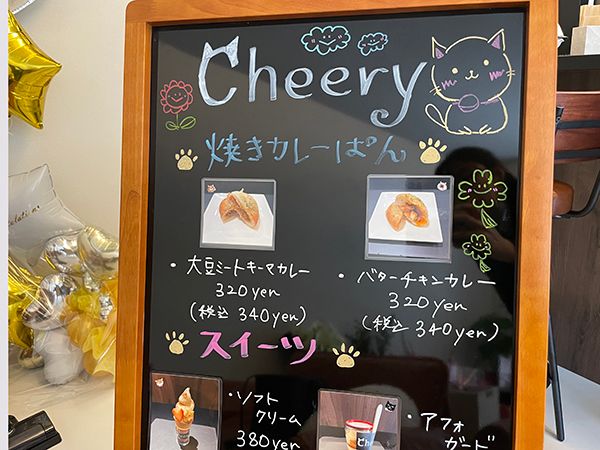 Cheery
焼きカレーぱん
・大豆ミートキーマカレー
320yen
(税込 340yen)
・バターチキンカレー
320yen
(税込 340yen)
スイーツ
・ソフト
クリーム
380yen
・アフォ
ガード